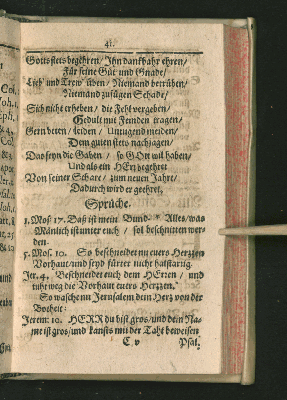 41.
Gott stets begehren / Ihn danckbahr ehren /
Für seine Güt und Gnade /
Lieb' und Trew üben / Niemand betrüben /
Niemand zufügen Schade /
Sich nicht erheben / die Fehl vergeben /
Gedult mit Feinden tragen /
Gern beten / leiden / Untugend meiden /
Dem guten stets nachjagen /
Das seyn die Gaben / so GOtt wil haben /
Und als ein HErr begehret
Von seiner Schaar / zum neuen Jahre /
Dadurch wird er geehret.
Sprüche.
1. Mos. 17. Daß ist mein Bund. Alles / was
Mänlich ist unter euch / sol beschnitten wer-
den.
5. Mos. 10. So beschneidet nu euers Hertzen
Vorhaut / und seyd fürter nicht halstarrig.
Jer. 4. Beschneidet euch dem HErren / und
thut weg die Vorhaut euers Hertzen.
So wasche nu Jerusalem dein Hertz von der
Bosheit.
Jerem. 10. HERR du bist gros / und dein Na-
me ist gros / und kanst es mit der Taht beweisen
C v
Psal.